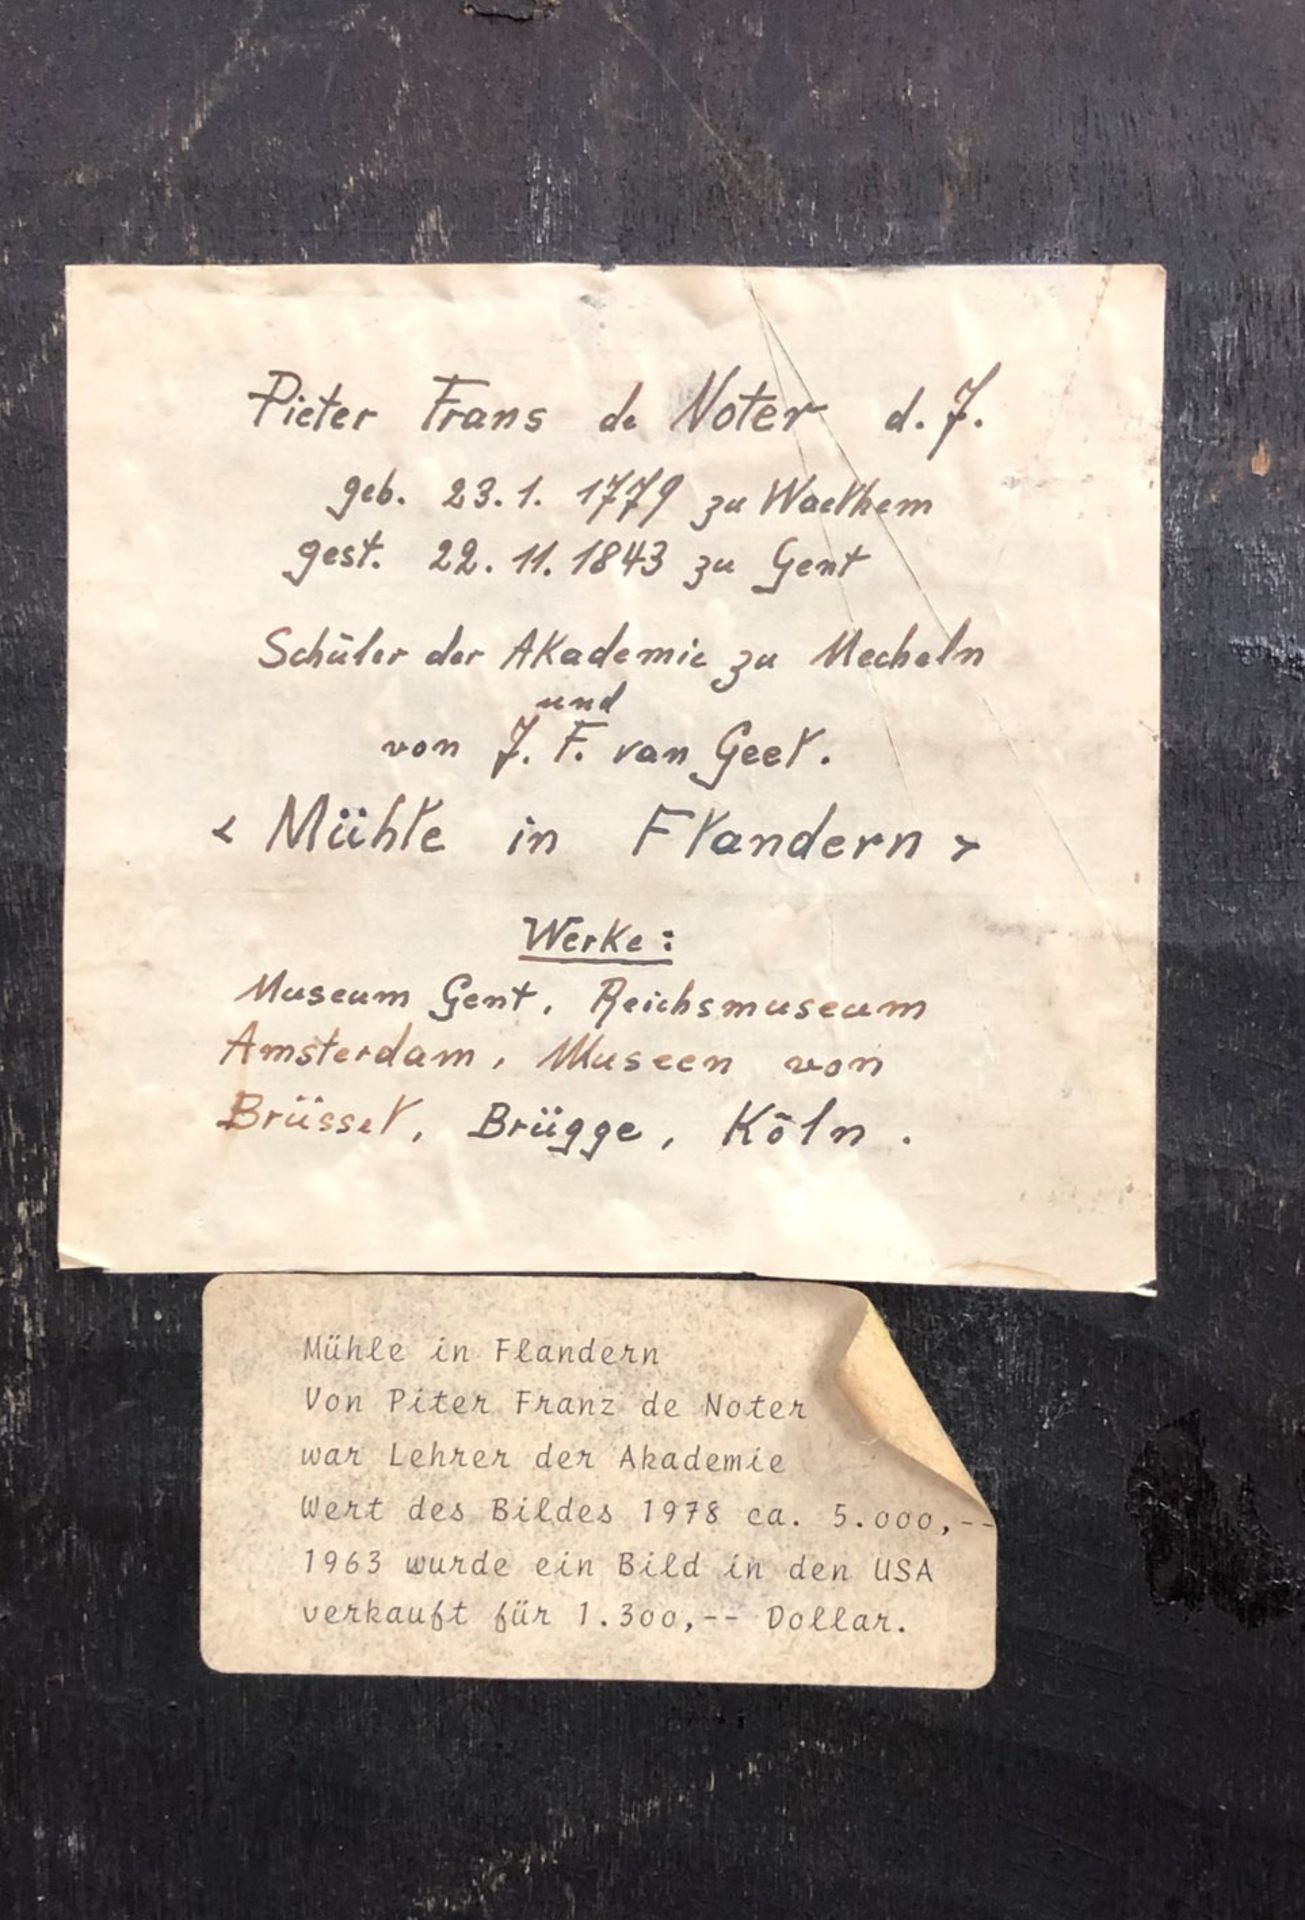 Pieter Frans de Noter d. J.
geb. 23. 1. 1779 zu Waelhem
gest. 22. 11. 1843 zu Gent
Schüler der Akademie zu Mecheln
und
von J. F. van Geel.
< Mühle in Flandern >
Werke:
Museum Gent, Reichsmuseum
Amsterdam, Museen von
Brüssel, Brügge, Köln.
Mühle in Flandern
Von Piter Franz de Noter
war Lehrer der Akademie
Wert des Bildes 1978 ca. 5.000,--
1963 wurde ein Bild in den USA
verkauft für 1.300,-- Dollar.